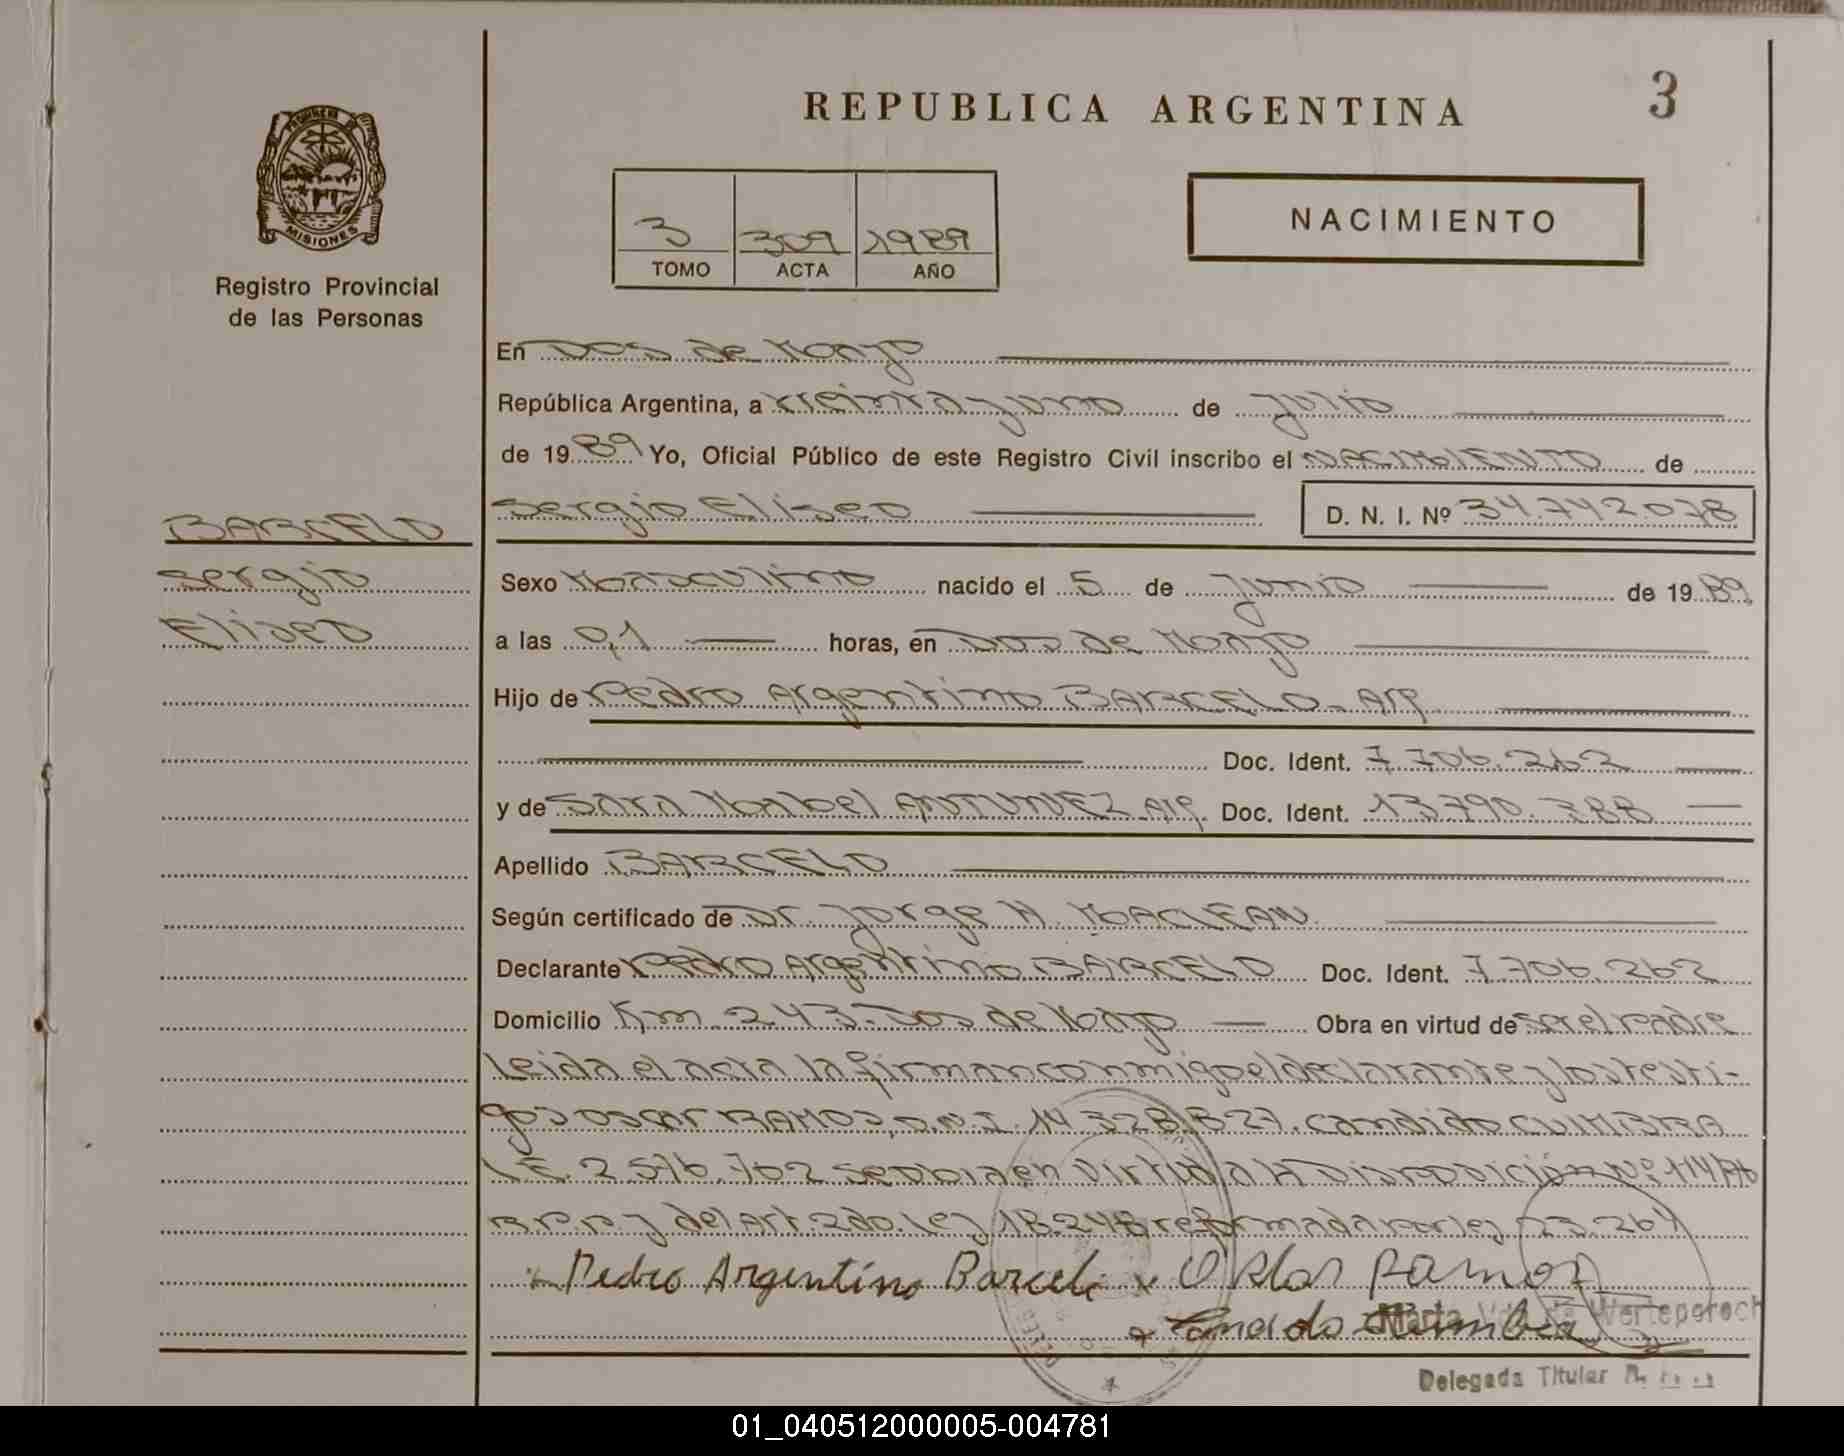 REPUBLICA ARGENTINA
3
PROVINCIA DE
MISIONES
Registro Provincial
de las Personas
3 309 1989
TOMO ACTA AÑO
NACIMIENTO
En Dos de Mayo
República Argentina, a treinta y uno de Julio
de 1989 Yo, Oficial Público de este Registro Civil inscribo el NACIMIENTO de
Sergio Eliseo D. N. I. Nº 34.742.078
BARCELO
Sergio
Eliseo
Sexo Masculino nacido el 5 de Junio de 1989
a las 0,1 horas, en Dos de Mayo
Hijo de Pedro Argentino BARCELO. Arg.
Doc. Ident. 7.706.262
y de Sara Mabel ANTUNEZ. Arg. Doc. Ident. 13.790.388
Apellido BARCELO
Según certificado de Dr. Jorge H. MACLEAN
Declarante Pedro Argentino BARCELO Doc. Ident. 7.706.262
Domicilio Km. 243. Dos de Mayo Obra en virtud de ser el padre
Leida el acta la firman conmigo el declarante y los testi-
gos Oscar RAMOS, D.N.I. 14.328.827. Candido CUIMBRA
L.E. 2.576.702 se obia en virtud a la Disposición Nº 114/86
R.P.P. y del Art. 2do. Ley 18.248 reformada por ley 23.264
Pedro Argentino Barcelo Oscar Ramos
Marta Werteporoch
Delegada Titular
01_040512000005-004781